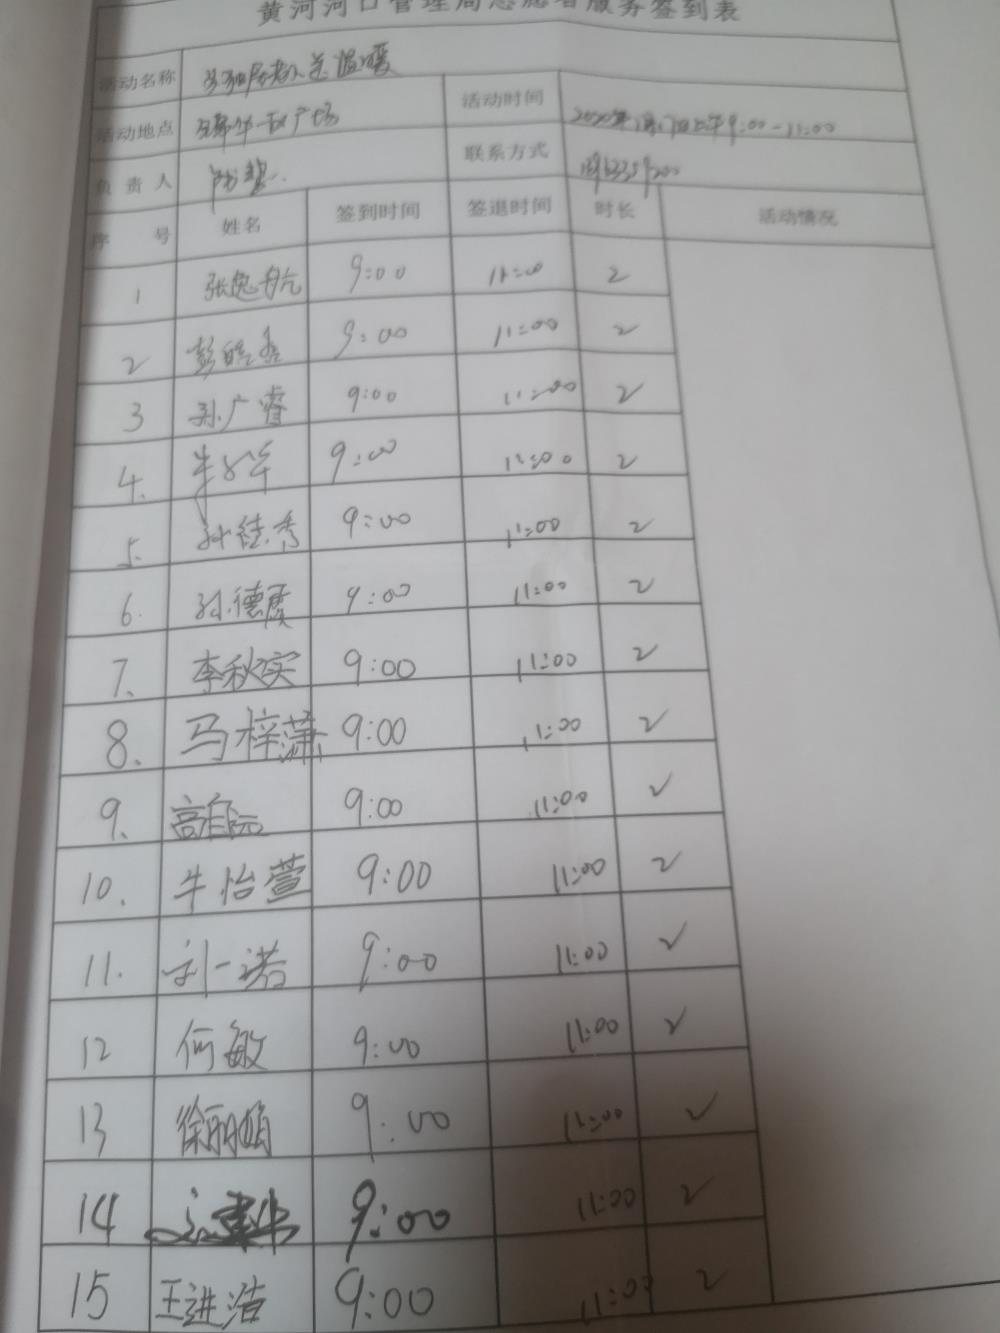 黄河河口管理局志愿者服务签到表
活动名称 送温暖
活动地点 广场 活动时间 9:00-11:00
负责人 联系方式
序号 姓名 签到时间 签退时间 时长 活动情况
1 9:00 11:00 2
2 彭 9:00 11:00 2
3 孙广睿 9:00 11:00 2
4. 9:00 11:00 2
5. 孙 秀 9:00 11:00 2
6. 孙德 9:00 11:00 2
7. 李秋实 9:00 11:00 2
8. 马梓潇 9:00 11:00 2
9. 高 9:00 11:00 2
10. 牛怡萱 9:00 11:00 2
11. 刘一诺 9:00 11:00 2
12 何敏 9:00 11:00 2
13 徐丽娟 9:00 11:00 2
14 9:00 11:00 2
15 王进洁 9:00 11:00 2